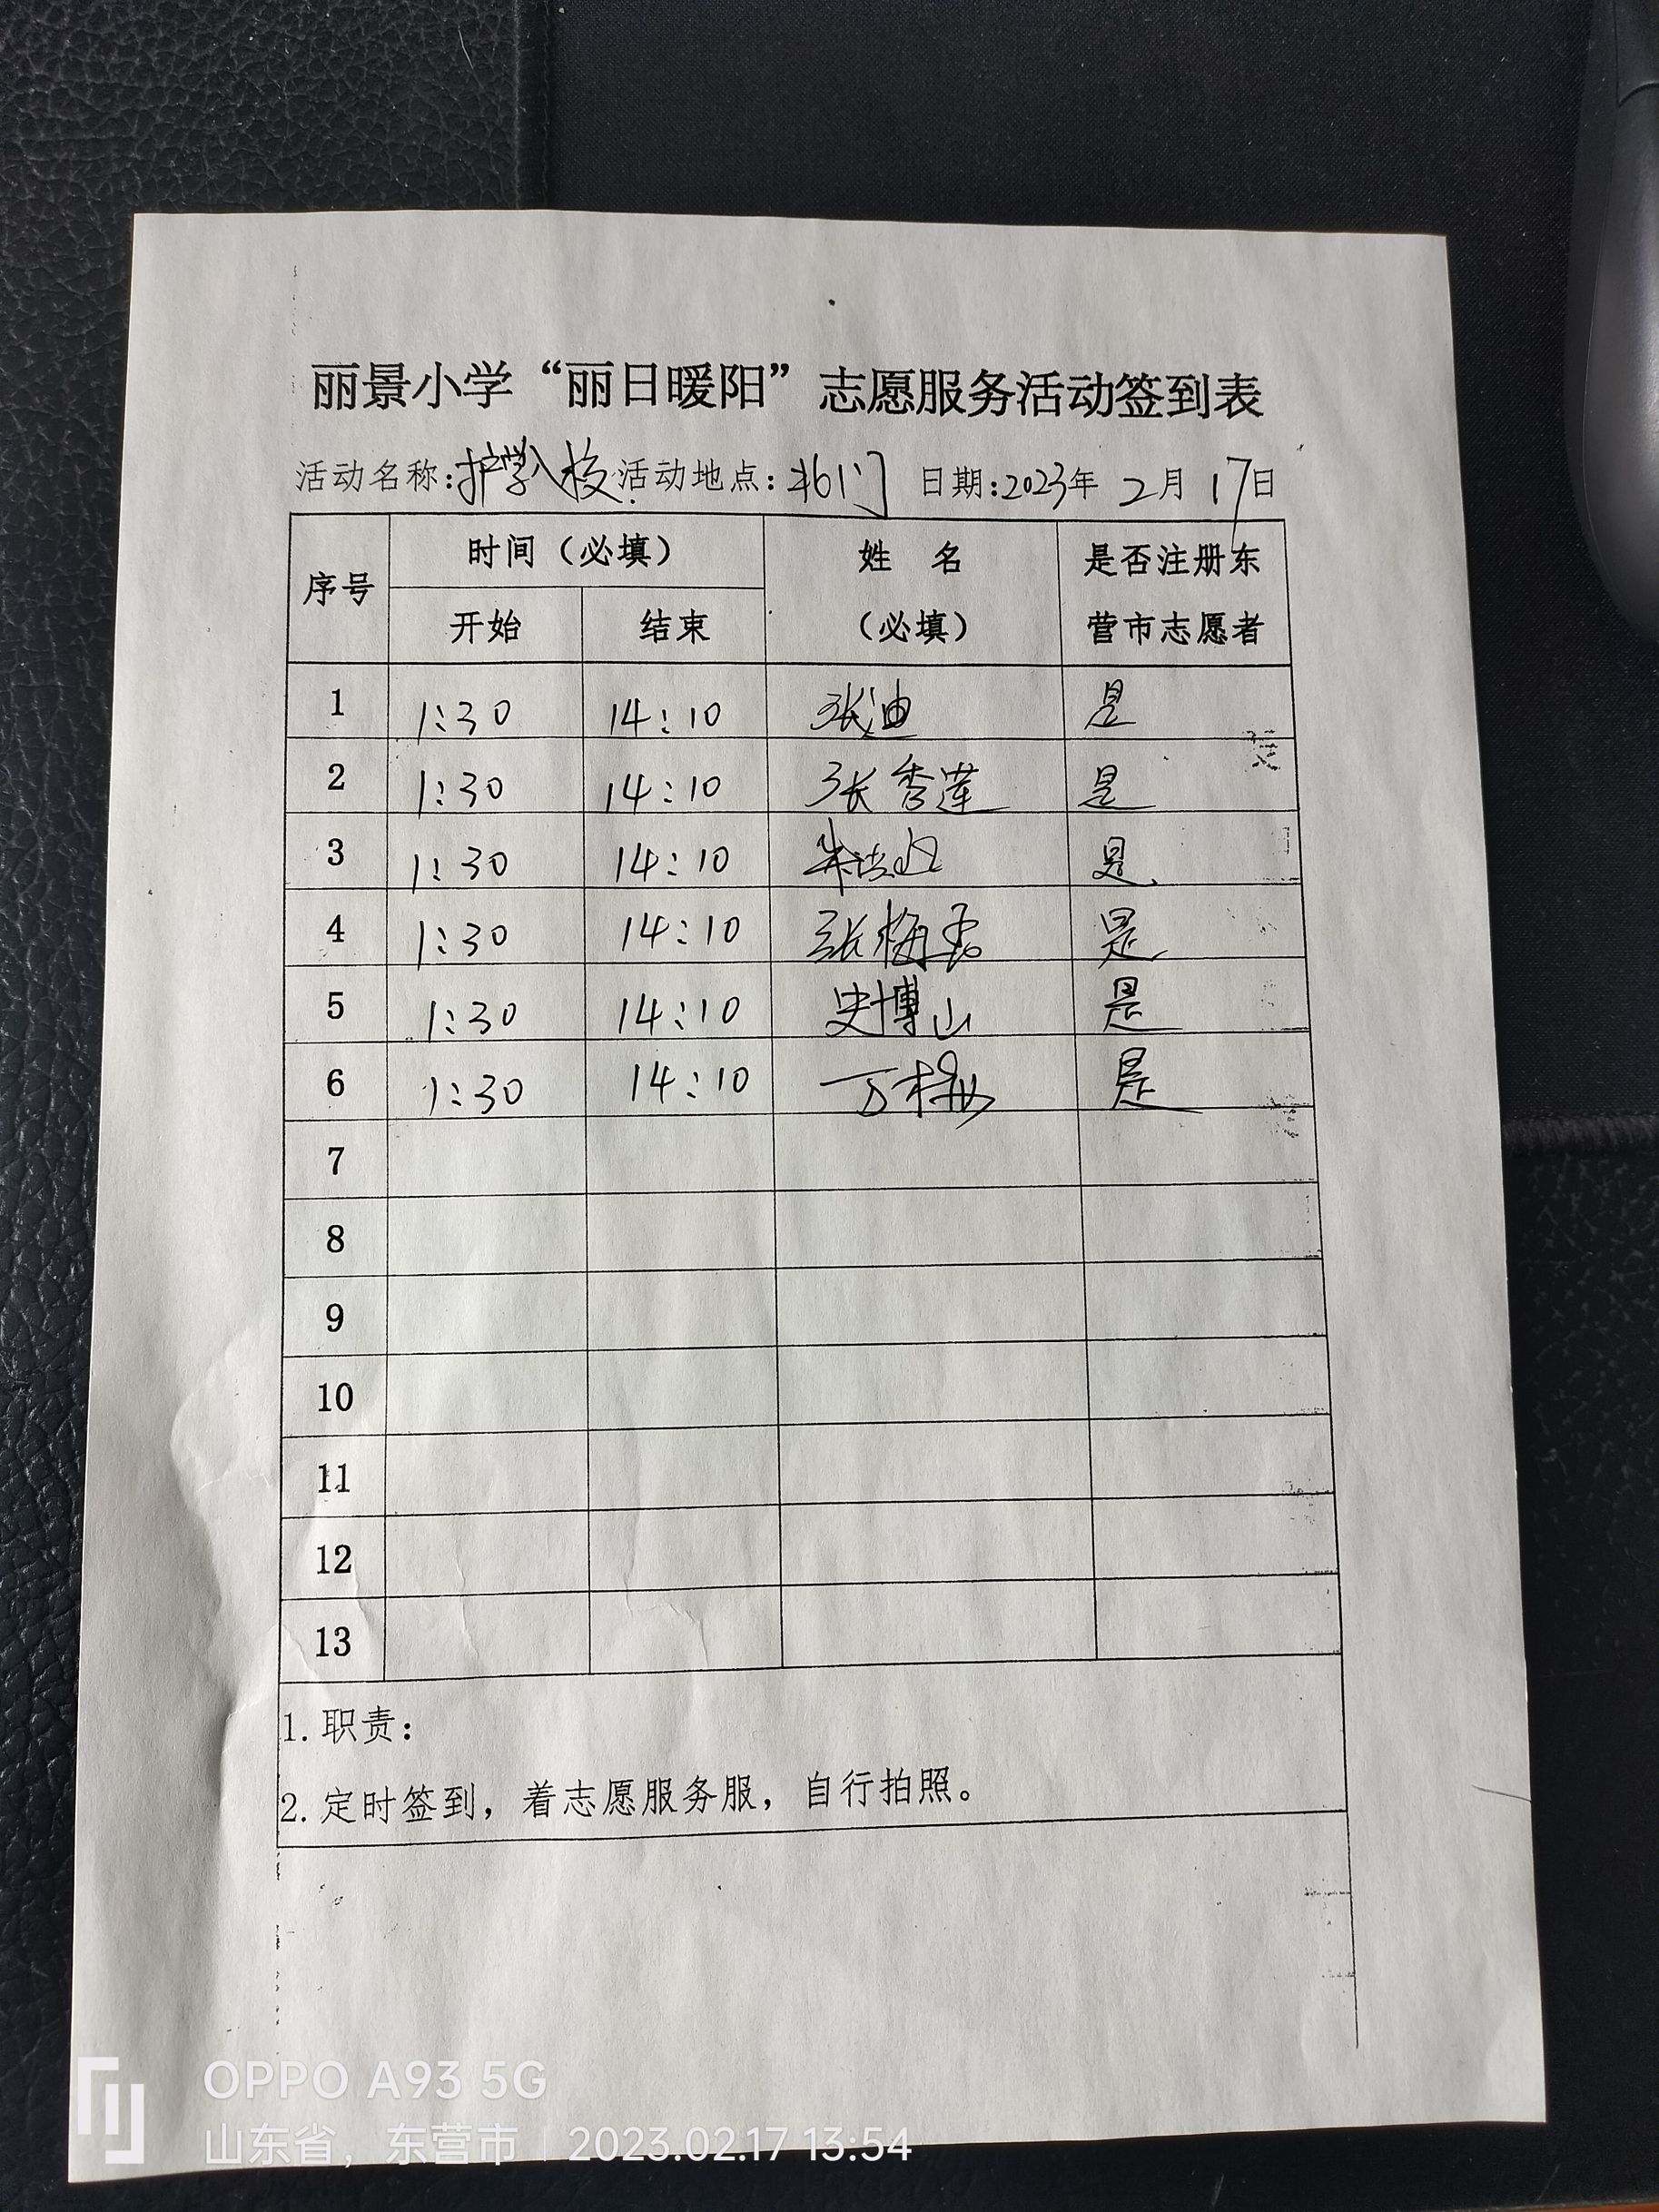 丽景小学“丽日暖阳”志愿服务活动签到表
活动名称:护学入校 活动地点:北门 日期:2023年 2月 17日
序号 时间（必填） 姓 名 是否注册东
开始 结束 （必填） 营市志愿者
1 1:30 14:10 张迪 是
2 1:30 14:10 张秀莲 是
3 1:30 14:10 是
4 1:30 14:10 张梅 是
5 1:30 14:10 史博山 是
6 1:30 14:10 万 是
7
8
9
10
11
12
13
1.职责:
2.定时签到，着志愿服务服，自行拍照。
OPPO A93 5G
山东省，东营市 | 2023.02.17 13:54